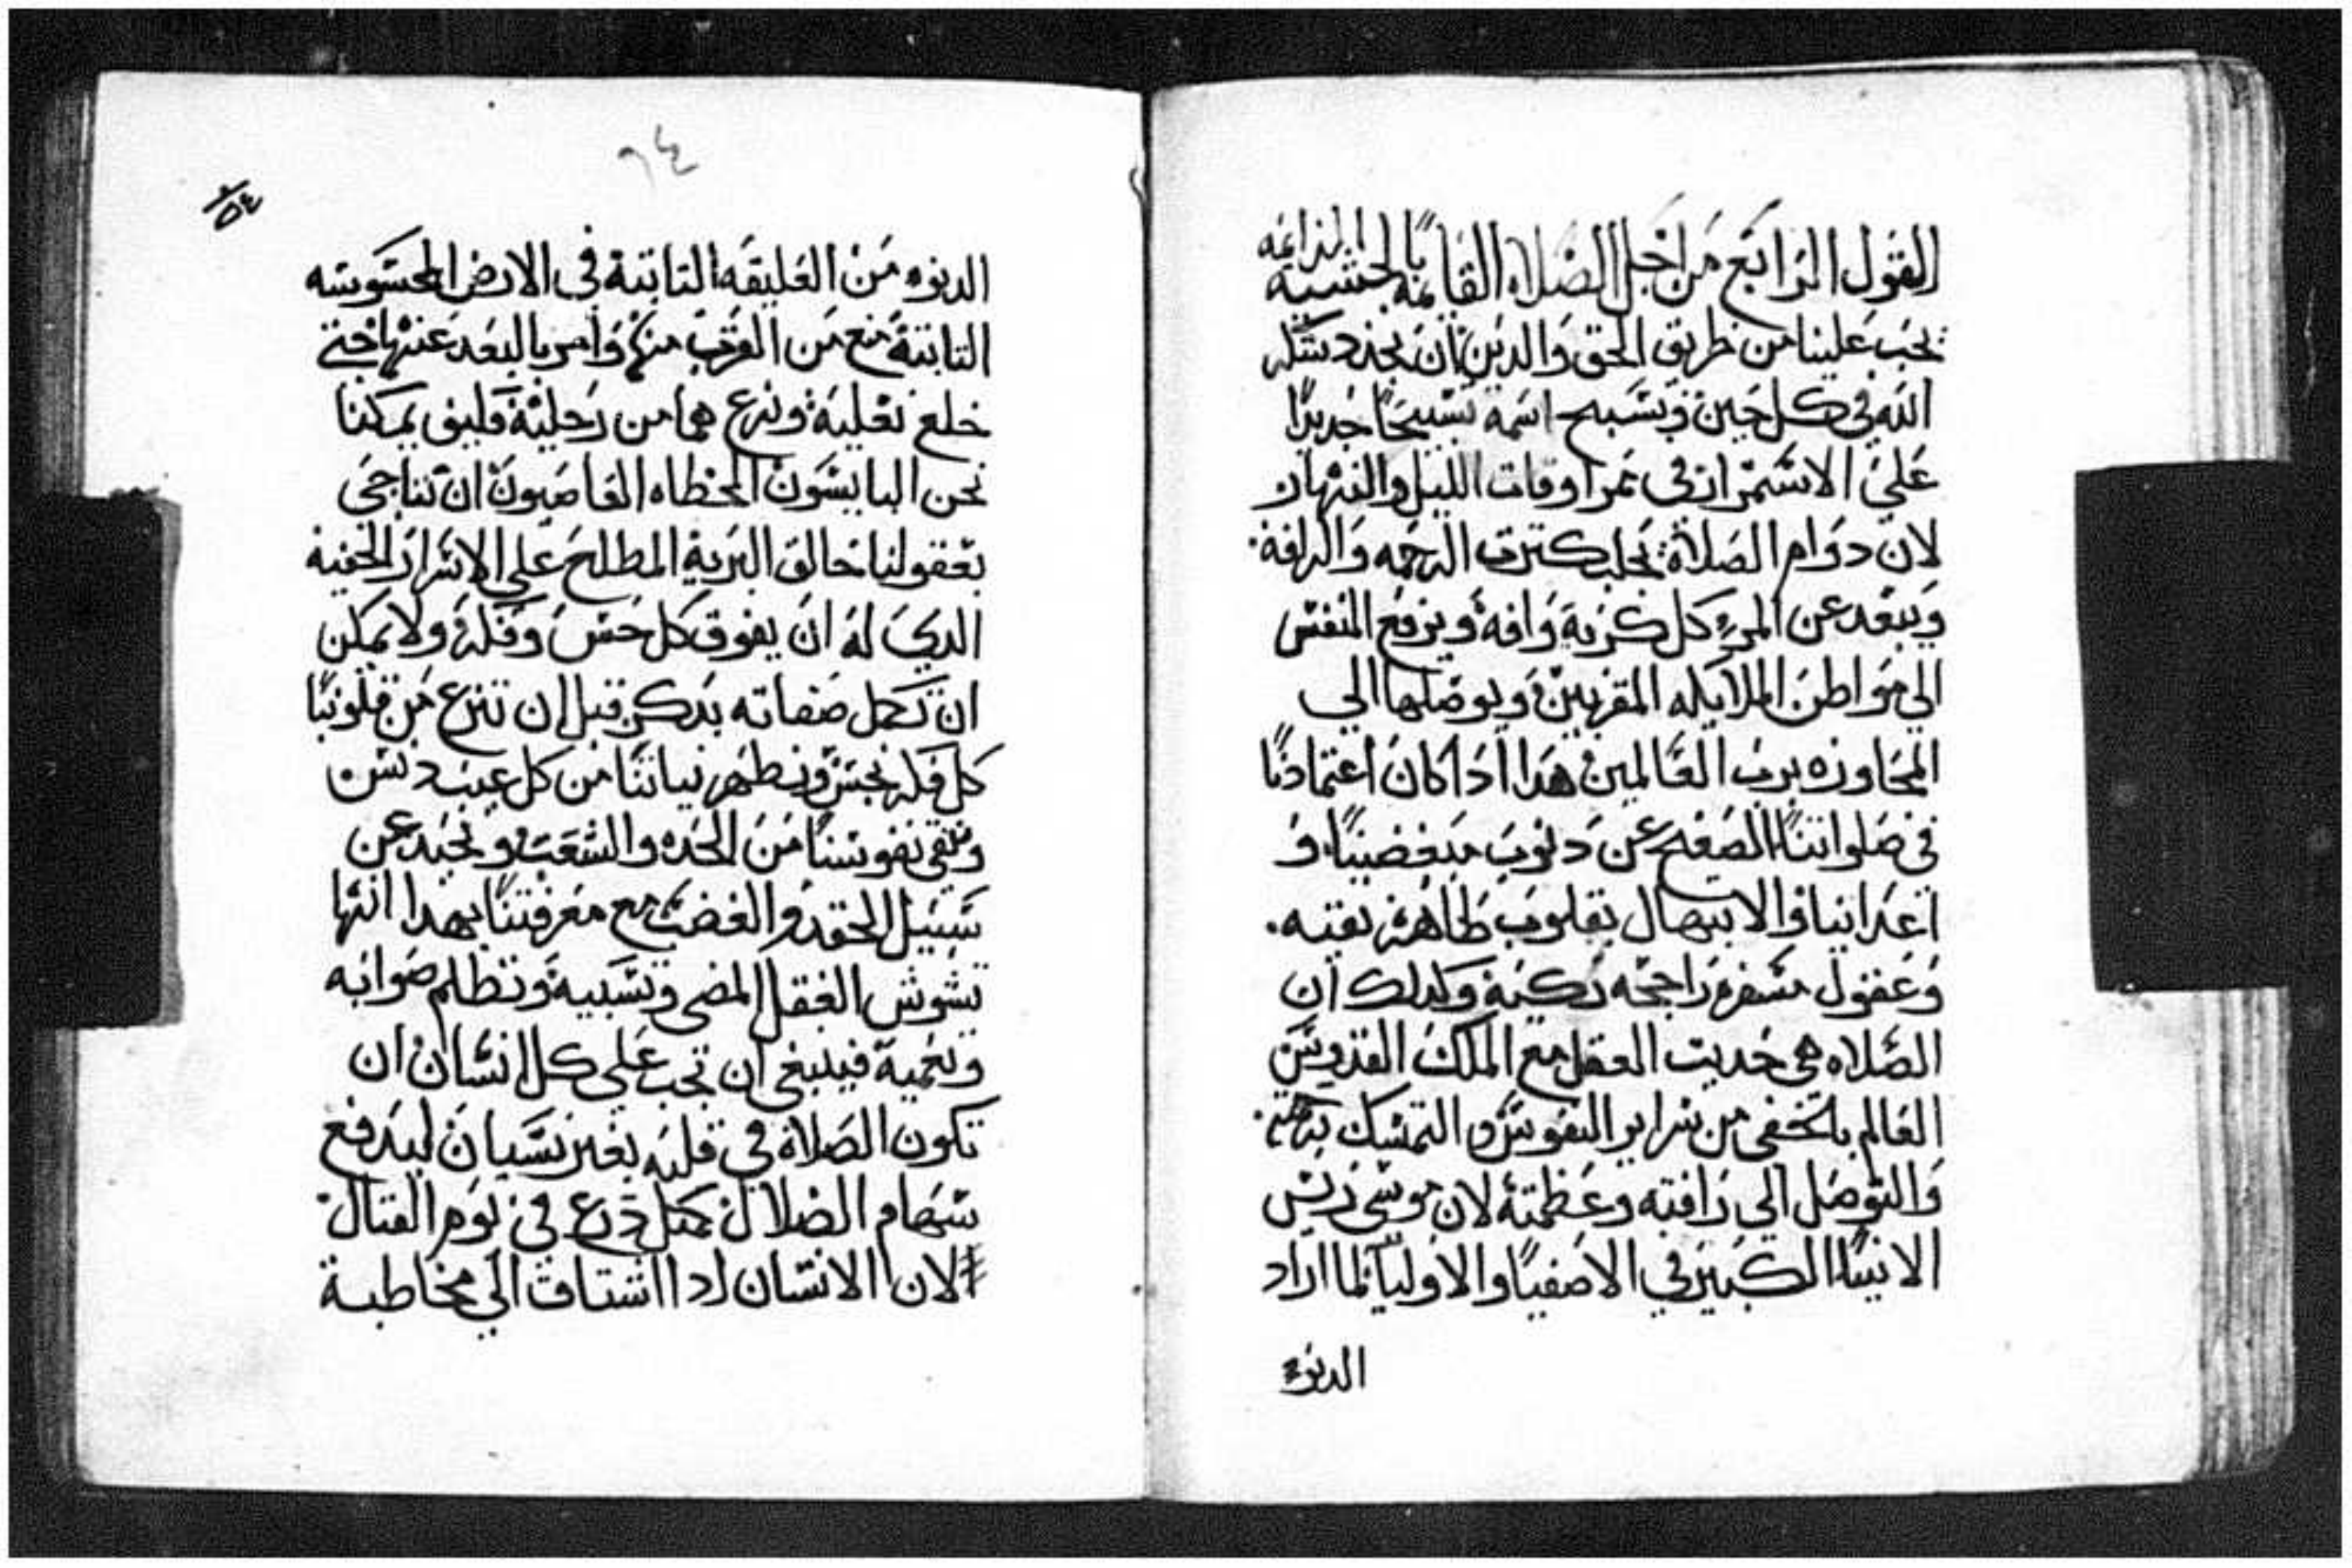 القول الرابع من اجل الصلاه القايمه بالخشية الدايمه
يجب علينا من طريق الحق والدين ان نجدد شكر
الله في كل حين ونسبح اسمه تسبيحا جديدا
علي الاستمرار في ممر اوقات الليل والنهار
لان دوام الصلاة تجلب كترت الرحمه والرافة
ويبعد عن المرء كل كربة وافه ويرفع النفس
الي مواطن الملايكه المقربين ويوصلها الي
المجاوره برب العالمين هدا ادا كان اعتمادنا
في صلواتنا الصفح عن دنوب مبغضينا و
اعداينا والابتهال بقلوب طاهره نقيه
وعقول مسفره راجحه زكية وكدلك ان
الصلاه هي حديت العقل مع الملك القدوس
العالم بالخفي من سراير النفوس والتمسك برحمته
والتوصل الي رافته وعظمته لان موسي ريس
الانبيا الكبير في الاصفيا والاوليا لما اراد
الدنو
٩٤
٥٤
الدنوه من العليقه التابتة في الارض المحسوسه
التابتة منع من القرب منها وامر بالبعد عنها حتي
خلع نعليه ونزعهما من رجلية فكيف يمكننا
نحن البايسون الخطاه العاصيون ان نناجي
بعقولنا خالق البرية المطلع علي الاسرار الخفية
الدي له ان يفوق كل حس وفكر ولا يمكن
ان تكمل صفاته بدكر قبل ان ننزع من قلوبنا
كل فكر نجس ونطهر نياتنا من كل عيب دنس
وننقي نفوسنا من الحده والشغب ونحيد عن
سبيل الحقد والغضب مع معرفتنا بهدا انها
تشوش العقل المضي وتسبية وتظلم صوابه
وتعمية فينبغي ان تجب علي كل انسان ان
تكون الصلاة في قلبه بغير نسيان ليدفع
سهام الضلال كمتل درع في يوم القتال
لان الانسان ادا اشتاق الي مخاطبة